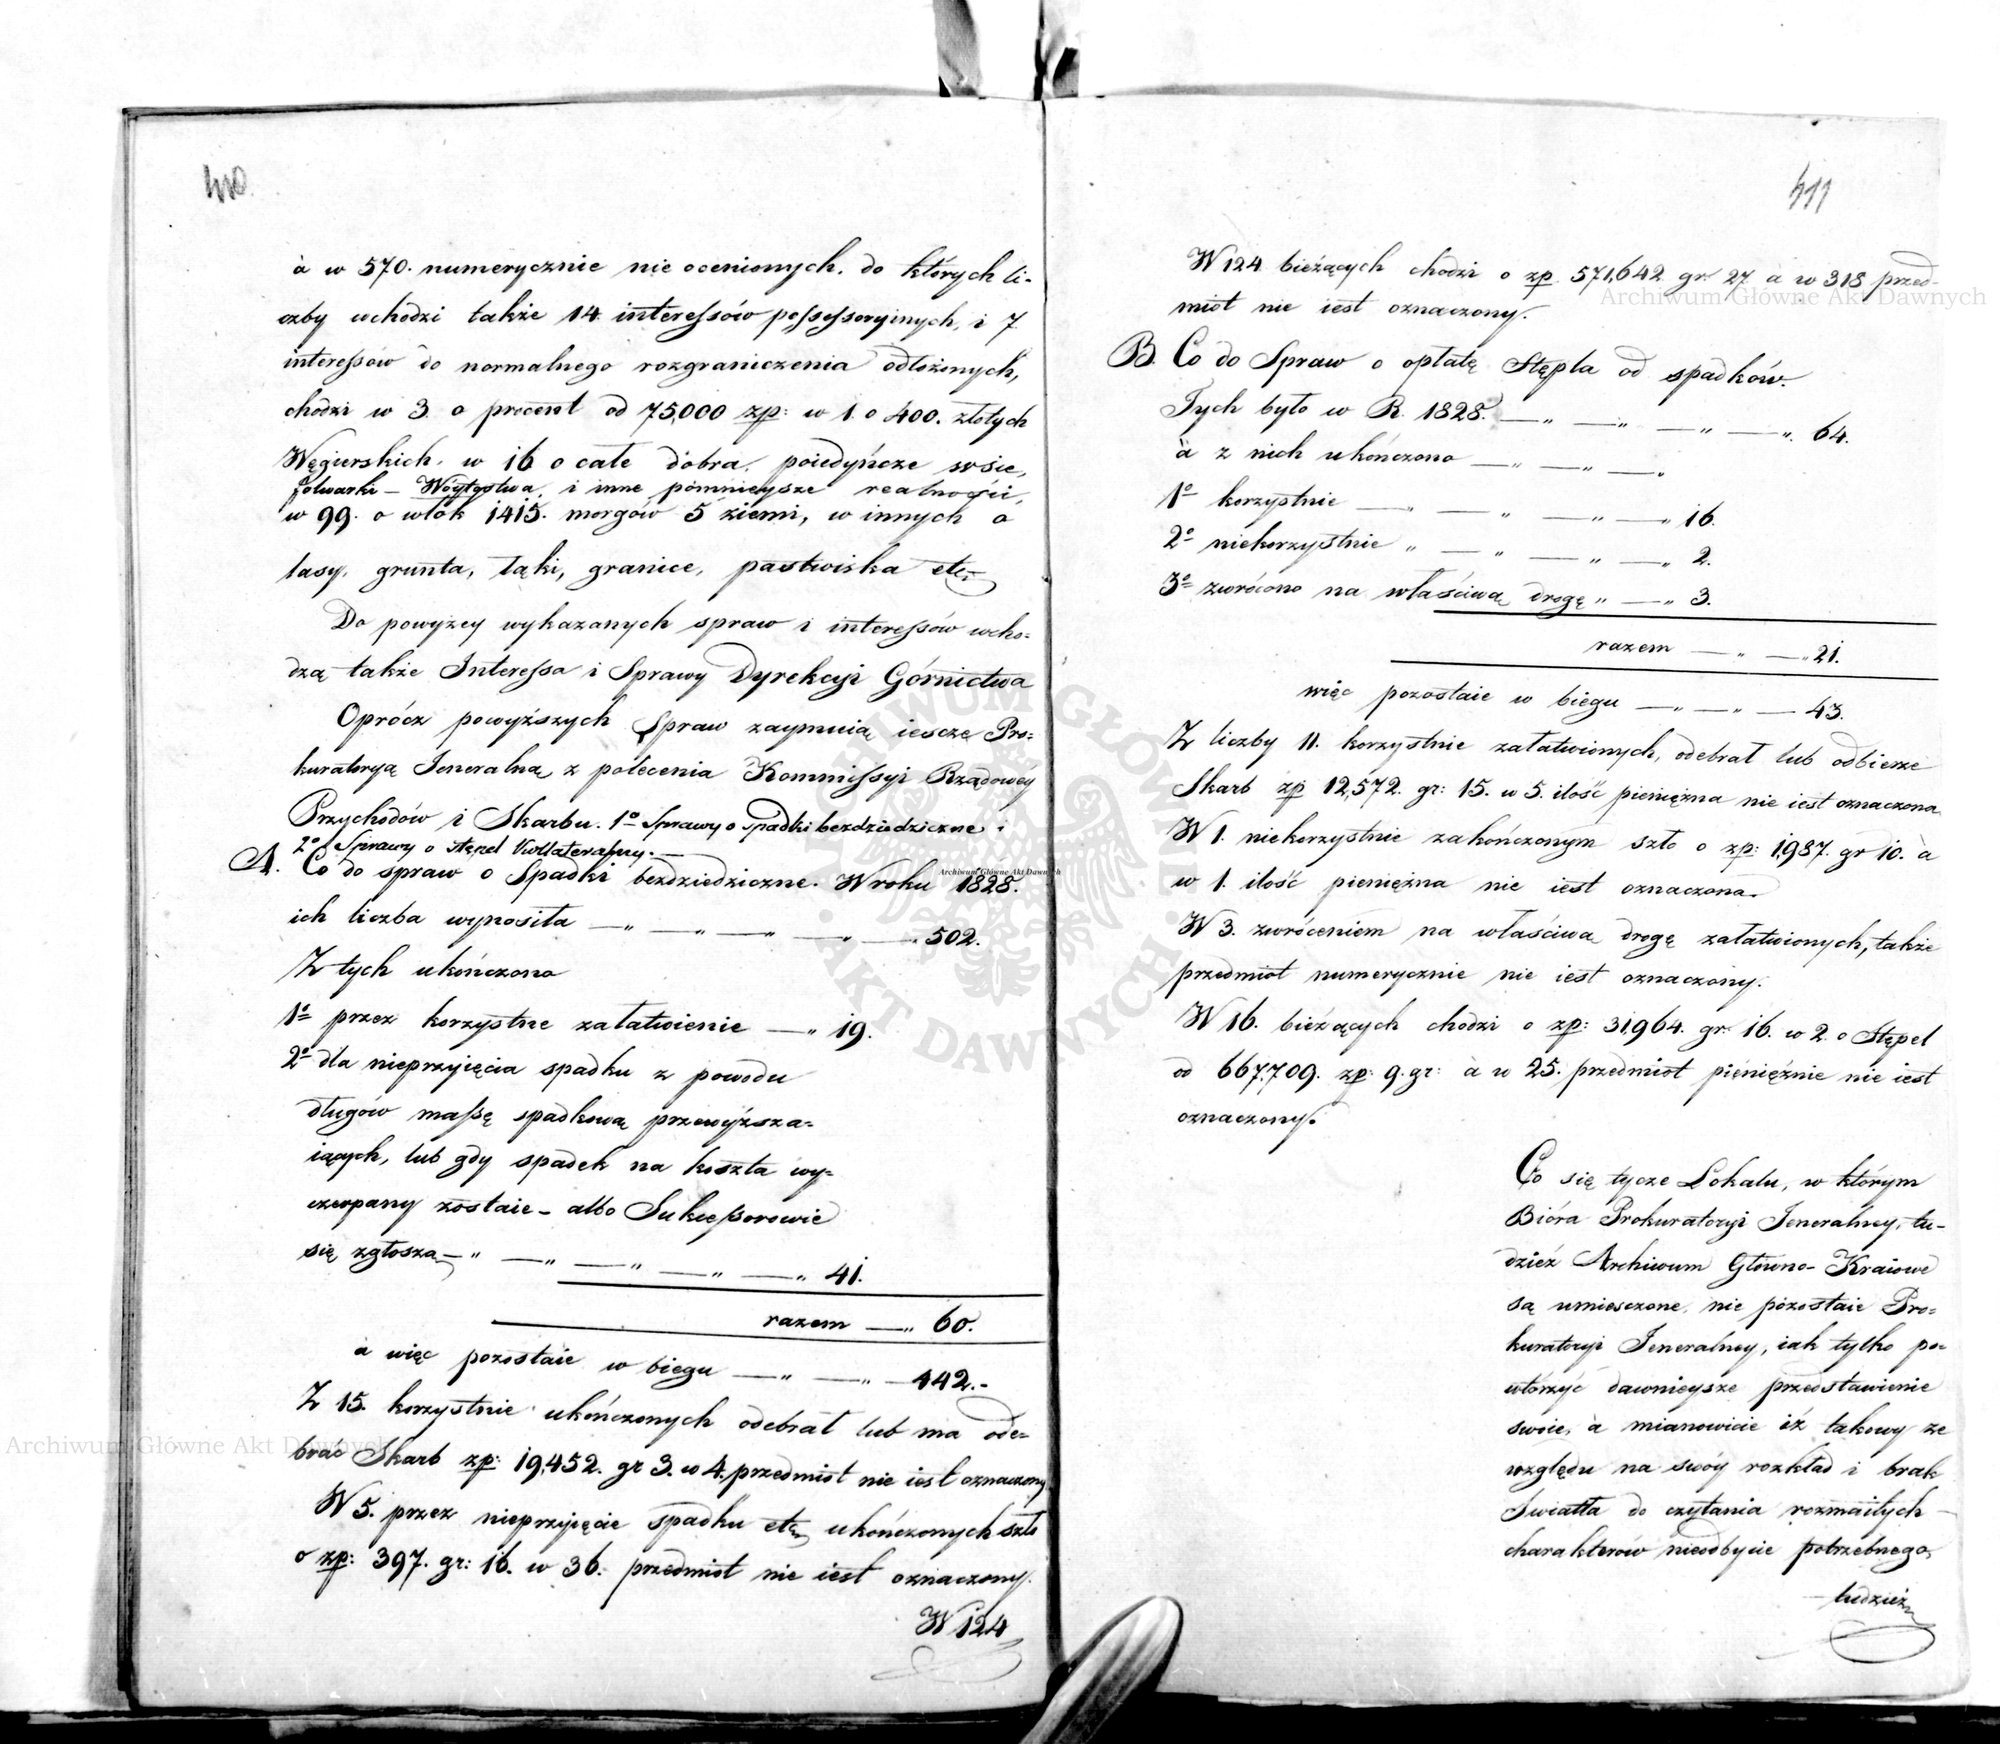 410.
à w 570. numerycznie nie ocenionych. do których li-
czby wchodzi także 14 interessów possessoryinych, i 7
interessów do normalnego rozgraniczenia odłożonych,
chodzi w 3 o procent od 75,000 zp: w 1. o 400. złotych
Węgierskich, w 16 o całe dobra, poiedyńcze wsie,
folwarki – Wóytostwa, i inne pomnieysze realności,
w 99. o włók 1415. morgów 5 ziemi, w innych o
lasy, grunta, łąki, granice, pastwiska etc
Do powyżey wykazanych spraw i interessów wcho-
dzą także Interessa i Sprawy Dyrekcyi Górnictwa
Oprócz powyższych Spraw zaymuią iescze Pro-
kuratoryą Jeneralną z polecenia Kommissyi Rządowéy
Przychodów i Skarbu. 1º Sprawy o spadki bezdziedziczne i
2º Sprawy o stępel Kollateralny. —
A. Co do spraw o Spadki bezdziedziczne. W roku 1828.
ich liczba wynosiła — „ — „ — „ — „ — 502.
Z tych ukończono
1º przez korzystne załatwienie — „ 19.
2º dla nieprzyięcia spadku z powodu
długów massę spadkową przewyższa-
iących, lub gdy spadek na koszta wy-
czerpany zostaie – albo Sukcessorowie
się zgłoszą – „ — „ — „ — „ — „ 41.
razem — „ 60.
a więc pozostaie w biegu — „ — „ — 442.-
Z 15. korzystnie ukończonych odebrał lub ma ode-
brać Skarb zp: 19,452. gr 3. w 4. przedmiot nie iest oznaczony
W 5. przez nieprzyięcie spadku etc ukończonych szło
o zp: 397. gr: 16. w 36. przedmiot nie iest oznaczony.
W 124
411
W 124 bieżących chodzi o zp 571,642 gr 27 a w 318 przed-
miot nie iest oznaczony.
B. Co do Spraw o opłatę Stępla od spadków.
Tych było w R. 1828. — „ — „ — „ — „ 64.
à z nich ukończono — „ — „ — „
1º korzystnie — „ — „ — „ — „ 16.
2º niekorzystnie „ — „ — „ — „ 2.
3º zwrócono na właściwą drogę „ — „ 3.
razem — „ — „ 21.
więc pozostaie w biegu — „ — „ — 43.
Z liczby 11. korzystnie załatwionych, odebrał lub odbierze
Skarb zp 12,572. gr: 15. w 5. ilość pieniężna nie iest oznaczona
W 1. niekorzystnie zakończonym szło o zp: 1,987. gr 10. à
w 1. ilość pieniężna nie iest oznaczona.
W 3. zwróceniem na właściwą drogę załatwionych, także
przedmiot numerycznie nie iest oznaczony.
W 16. bieżących chodzi o zp: 31,964. gr: 16. w 2. o Stępel
od 667,709. zp: 9. gr: à w 25. przedmiot pieniężnie nie iest
oznaczony.
Co się tycze Lokalu, w którym
Bióra Prokuratoryi Jeneralney, tu-
dzież Archiwum Główno-Kraiowe
są umiesczone, nie pozostaie Pro-
kuratoryi Jeneralney, iak tylko po-
wtórzyć dawnieysze przedstawienie
swoie, à mianowicie iż takowy ze
względu na swóy rozkład i brak
Swiatła do czytania rozmaitych —
charakterów nieodbycie potrzebnego,
tudzież
Archiwum Główne Akt Dawnych
Archiwum Główne Akt Dawnych
Archiwum Główne Akt Dawnych
ARCHIWUM GŁÓWNE AKT DAWNYCH